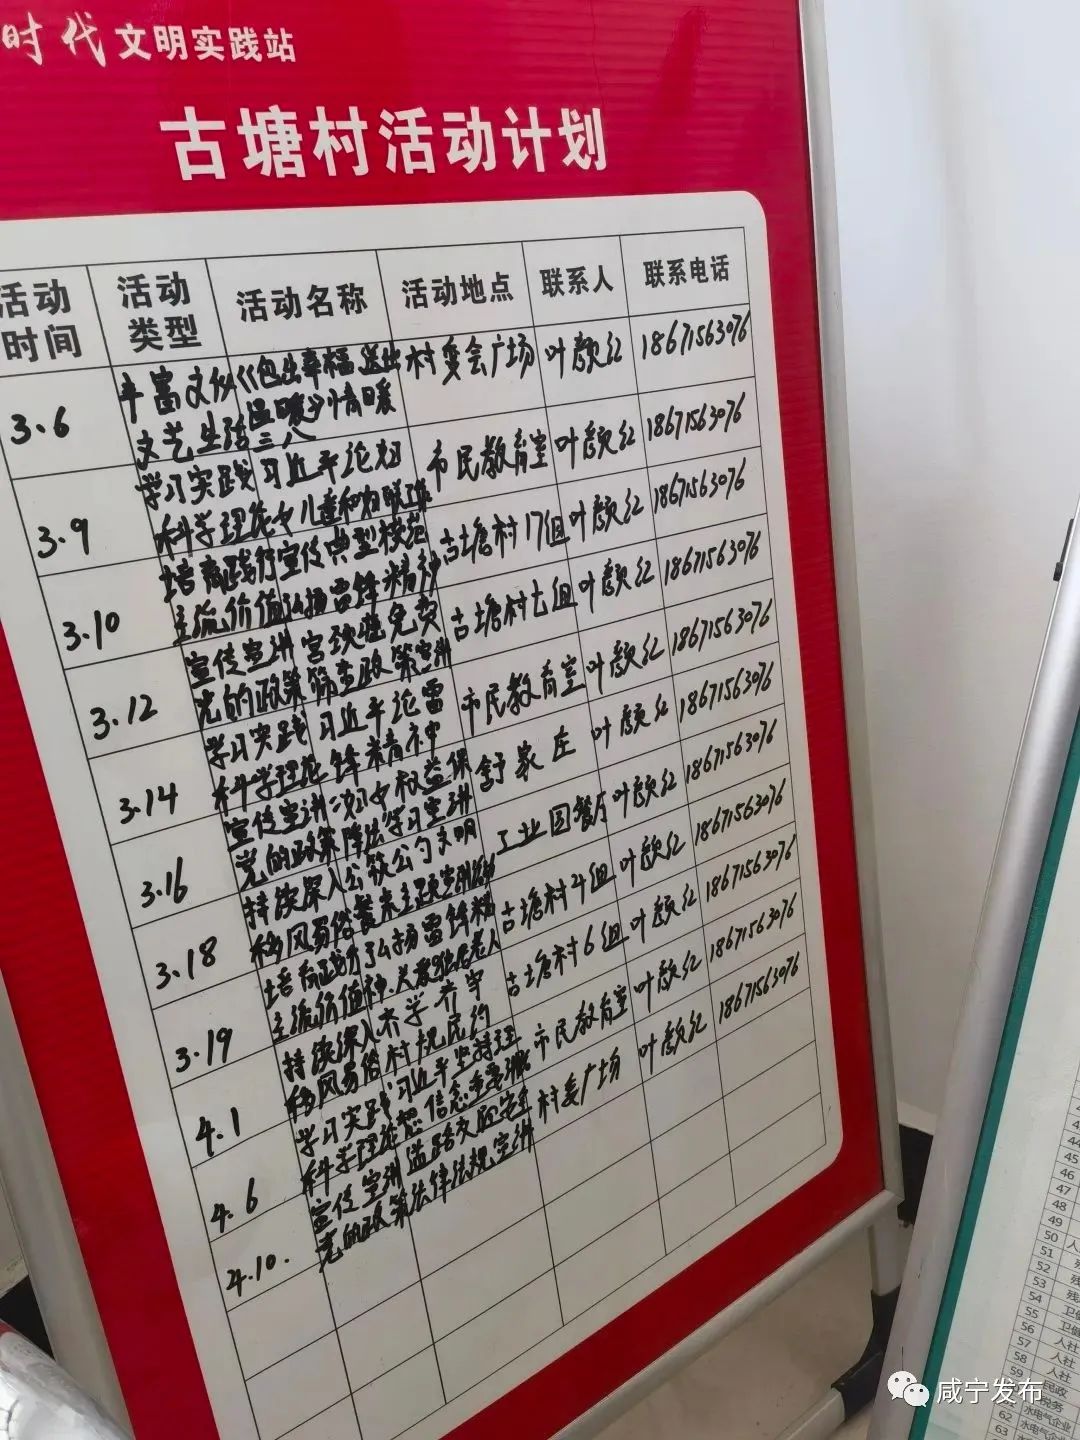 时代文明实践站
古塘村活动计划
活动时间 活动类型 活动名称 活动地点 联系人 联系电话
3.6 丰富文化文艺生活 《包出幸福 送出温暖》情暖三八 村委会广场 叶颜红 18671563076
3.9 学习实践科学理论 习近平论妇女儿童和妇联工作 市民教育室 叶颜红 18671563076
3.10 培育践行主流价值 宣传典型模范弘扬雷锋精神 古塘村17组 叶颜红 18671563076
3.12 宣传宣讲党的政策 宫颈癌免费筛查政策宣讲 古塘村七组 叶颜红 18671563076
3.14 学习实践科学理论 习近平论雷锋精神 市民教育室 叶颜红 18671563076
3.16 宣传宣讲党的政策 妇女权益保障法学习宣讲 舒家庄 叶颜红 18671563076
3.18 持续深入移风易俗 公筷公勺文明餐桌主题宣讲 工业园餐厅 叶颜红 18671563076
3.19 培育践行主流价值 弘扬雷锋精神.关爱独居老人 古塘村4组 叶颜红 18671563076
4.1 持续深入移风易俗 齐学齐守村规民约 古塘村6组 叶颜红 18671563076
4.6 学习实践科学理论 习近平坚持理想信念重要 市民教育室 叶颜红 18671563076
4.10. 宣传宣讲党的政策 道路交通安全法律法规宣讲 村委广场 叶颜红 18671563076
44
45
46
47
48
49
50 人
51
52 残
53 残
54
55 卫健
56 人社
57 人社
58 人社
59 民政
税务
62 水电气企业
63
咸宁发布